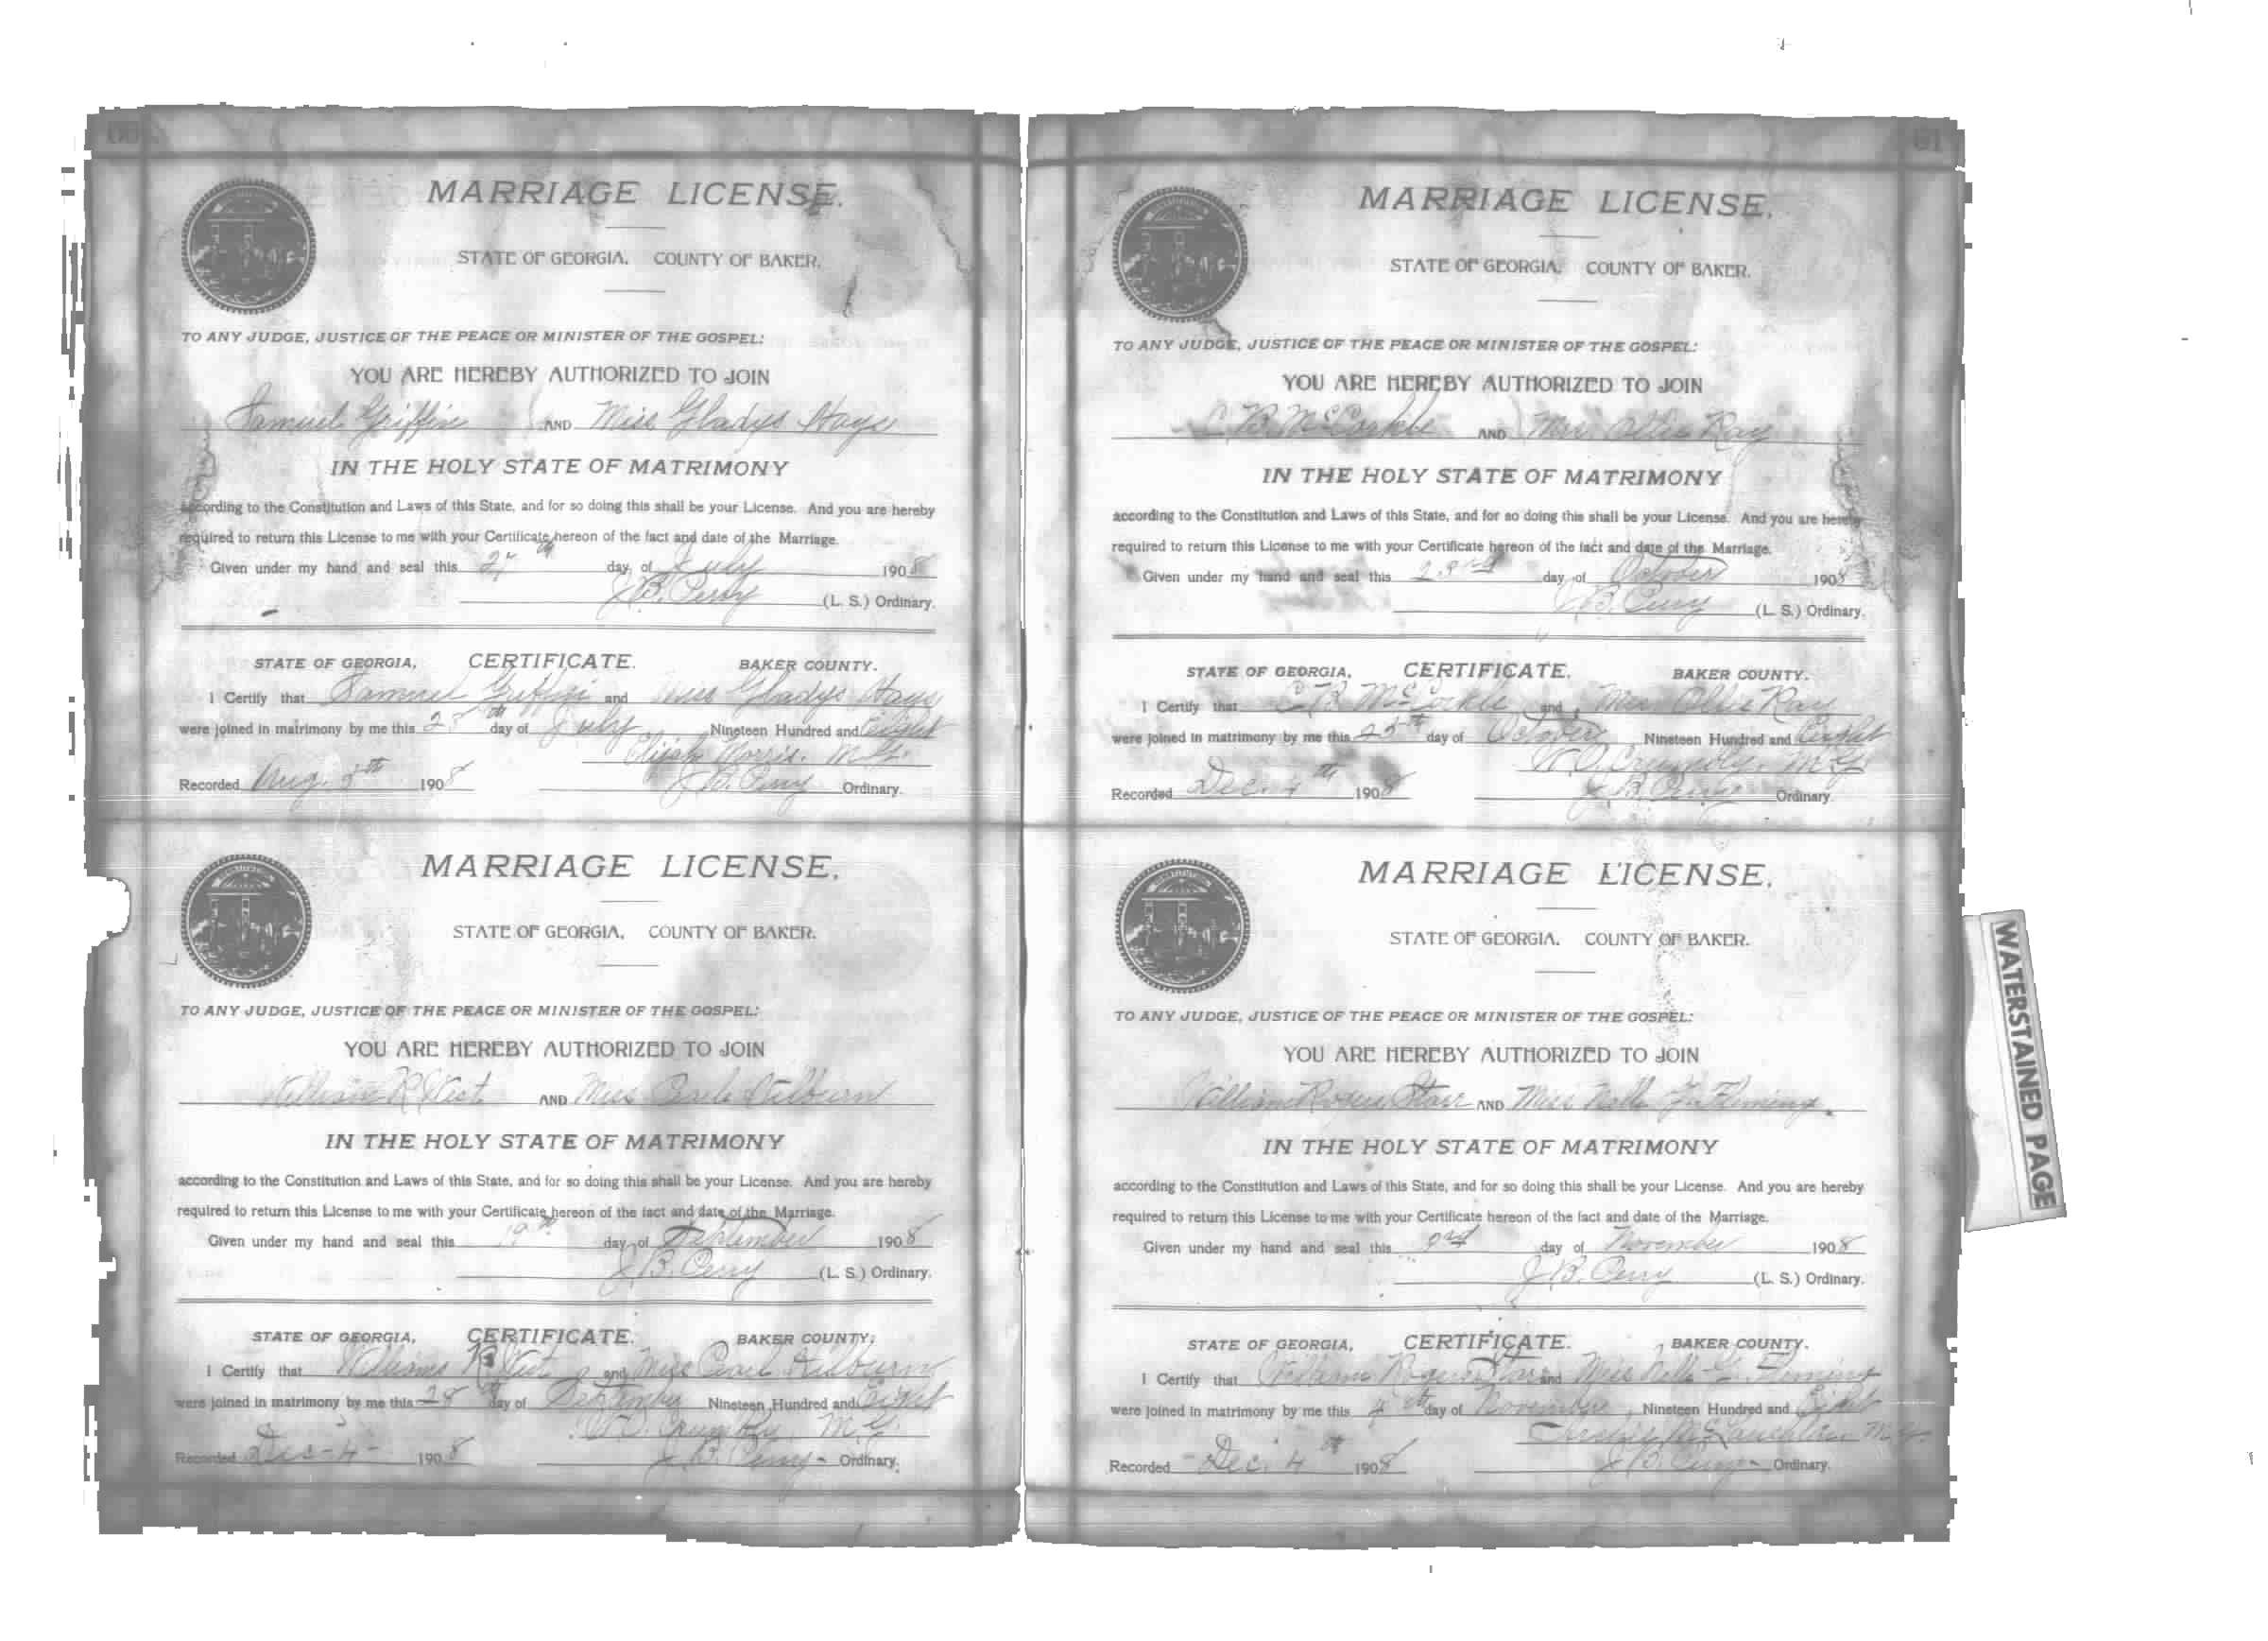 60
MARRIAGE LICENSE.
STATE OF GEORGIA. COUNTY OF BAKER.
TO ANY JUDGE, JUSTICE OF THE PEACE OR MINISTER OF THE GOSPEL:
YOU ARE HEREBY AUTHORIZED TO JOIN
Samuel Griffin AND Miss Gladys Hays
IN THE HOLY STATE OF MATRIMONY
according to the Constitution and Laws of this State, and for so doing this shall be your License. And you are hereby
required to return this License to me with your Certificate hereon of the fact and date of the Marriage.
Given under my hand and seal this 27th day of July 1908
J B. Perry (L. S.) Ordinary.
STATE OF GEORGIA, CERTIFICATE. BAKER COUNTY.
I Certify that Samuel Griffin and Miss Gladys Hays
were joined in matrimony by me this 28th day of July Nineteen Hundred and Eight
Elijah Morris. M.G.
Recorded Aug. 5th 1908 J B. Perry Ordinary.
MARRIAGE LICENSE.
STATE OF GEORGIA, COUNTY OF BAKER.
TO ANY JUDGE, JUSTICE OF THE PEACE OR MINISTER OF THE GOSPEL:
YOU ARE HEREBY AUTHORIZED TO JOIN
William R West AND Miss Pearl
IN THE HOLY STATE OF MATRIMONY
according to the Constitution and Laws of this State, and for so doing this shall be your License. And you are hereby
required to return this License to me with your Certificate hereon of the fact and date of the Marriage.
Given under my hand and seal this 19th day of September 1908
J B. Perry (L. S.) Ordinary.
STATE OF GEORGIA, CERTIFICATE. BAKER COUNTY,
I Certify that Williams R West and Miss Pearl
were joined in matrimony by me this 28th day of September Nineteen Hundred and Eight
W.O. Crumbly M.G.
Recorded Dec-4- 1908 J B. Perry - Ordinary.
61
MARRIAGE LICENSE.
STATE OF GEORGIA. COUNTY OF BAKER.
TO ANY JUDGE, JUSTICE OF THE PEACE OR MINISTER OF THE GOSPEL:
YOU ARE HEREBY AUTHORIZED TO JOIN
C B. McCorkle AND Mrs Ollie Ray
IN THE HOLY STATE OF MATRIMONY
according to the Constitution and Laws of this State, and for so doing this shall be your License. And you are hereby
required to return this License to me with your Certificate hereon of the fact and date of the Marriage.
Given under my hand and seal this 23rd day of October 1908
J B. Perry (L. S.) Ordinary.
STATE OF GEORGIA, CERTIFICATE. BAKER COUNTY.
I Certify that C B. McCorkle and Mrs Ollie Ray
were joined in matrimony by me this 25th day of October Nineteen Hundred and Eight
W.O. Crumbly. M G
Recorded Dec. 4th 1908 J B. Perry Ordinary.
MARRIAGE LICENSE.
STATE OF GEORGIA. COUNTY OF BAKER.
TO ANY JUDGE, JUSTICE OF THE PEACE OR MINISTER OF THE GOSPEL:
YOU ARE HEREBY AUTHORIZED TO JOIN
William Rogers Starr AND Miss Nelle G. Fleming.
IN THE HOLY STATE OF MATRIMONY
according to the Constitution and Laws of this State, and for so doing this shall be your License. And you are hereby
required to return this License to me with your Certificate hereon of the fact and date of the Marriage.
Given under my hand and seal this day of November 1908
J B. Perry (L. S.) Ordinary.
STATE OF GEORGIA, CERTIFICATE. BAKER COUNTY.
I Certify that William Rogers Starr and Miss Nelle G. Fleming
were joined in matrimony by me this 4th day of November, Nineteen Hundred and Eight
McLauchlin M.G.
Recorded Dec. 4th 1908 J B. Perry - Ordinary.
WATERSTAINED PAGE